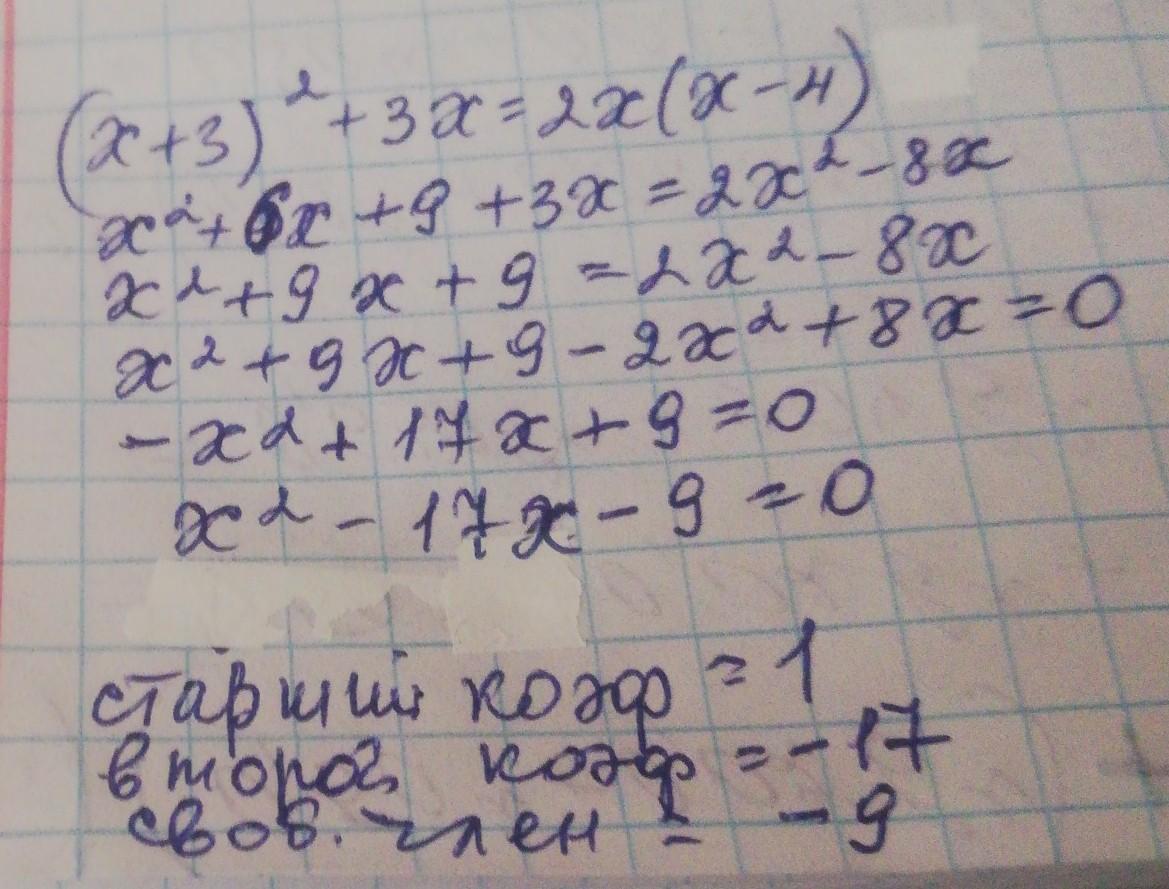 (x+3)² + 3x = 2x(x-4)
x² + 6x + 9 + 3x = 2x² - 8x
x² + 9x + 9 = 2x² - 8x
x² + 9x + 9 - 2x² + 8x = 0
-x² + 17x + 9 = 0
x² - 17x - 9 = 0
старший коэф = 1
второй коэф = -17
своб. член = -9